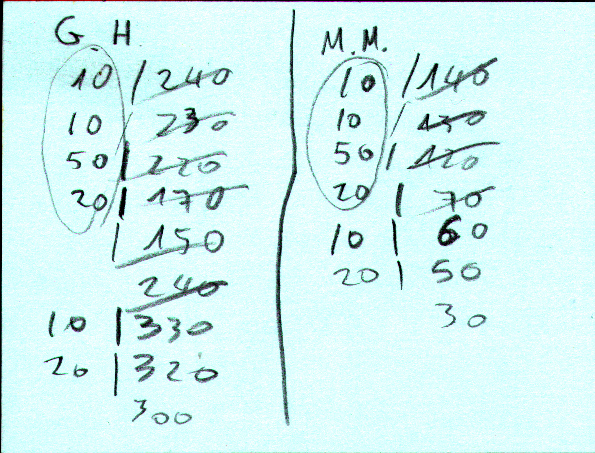 G. H.
10 / 240
10 / 230
50 | 220
20 | 170
| 150
240
10 | 330
20 | 320
300
M. M.
10 / 140
10 / 130
50 | 120
20 | 70
10 | 60
20 | 50
30